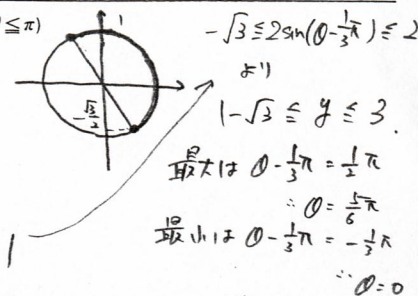 ≦π)
1
-√3/2
-√3 ≦ 2sin(θ-1/3π) ≦ 2
より
1-√3 ≦ y ≦ 3.
最大は θ-1/3π = 1/2π
∴ θ = 5/6π
最小は θ-1/3π = -1/3π
∴ θ = 0